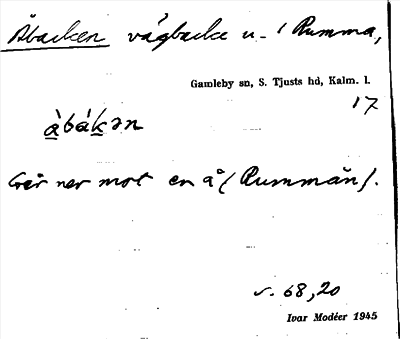 Åbacken vägbacke u. (Rumma,
Gamleby sn, S. Tjusts hd, Kalm. l.
17
à̱báḵən
Går ner mot en å (Rummån).
s. 68,20
Ivar Modéer 1945